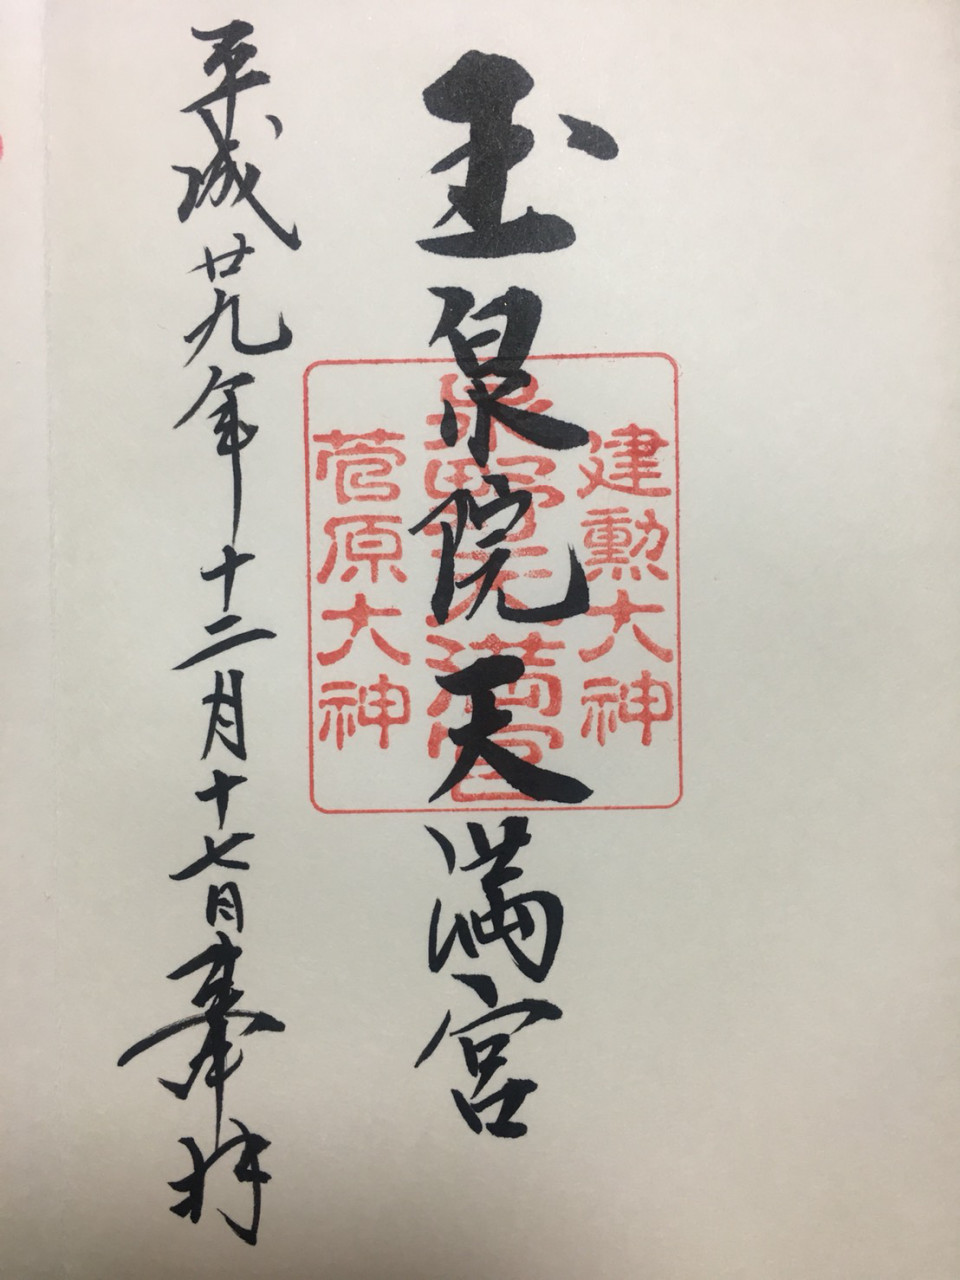 建勲大神
玉泉院天満宮
泉野天満宮
菅原大神
平成廿九年十二月十七日奉拝